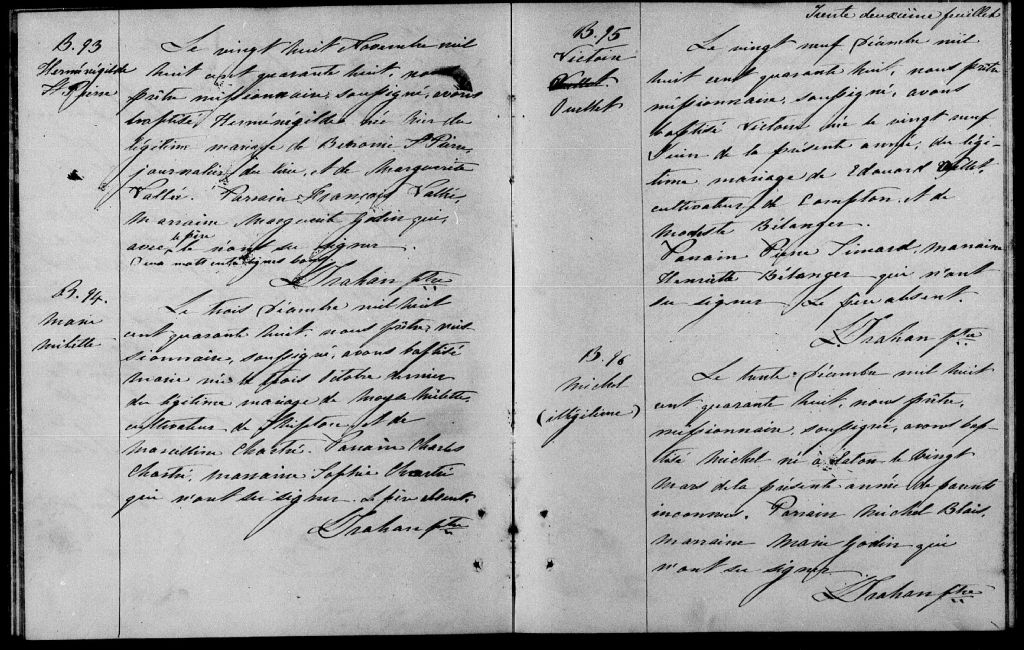 B. 93
Herménégilde
St Pierre
Le vingt huit Novembre mil
huit cent quarante huit, nous
prêtre missionnaire, soussigné, avons
baptisé, Herménégilde née hier du
légitime mariage de Benonie St Pierre,
journalier du lieu, et de Marguerite
Vallée. Parrain François Vallée,
Marraine Marguerite Godin qui,
avec le père n'ont su signer.
Deux mots entre lignes bons
L. Trahan ptre
B. 94.
Marie
Milette
Le trois Décembre mil huit
cent quarante huit, nous prêtre, mis
sionnaire, soussigné, avons baptisé
Marie née le trois Octobre dernier
du légitime mariage de Milette,
cultivateur de Shipton et de
Marcelline Chartré. Parrain Charles
Chartré, marraine Sophie Chartré
qui n'ont su signer. Le père absent.
L. Trahan ptre
Trente deuxième feuillet
B. 95
Victoire
Ouellet
Le vingt neuf Décembre mil
huit cent quarante huit, nous prêtre
missionnaire, soussigné, avons
baptisé Victoire née le vingt neuf
Juin de la présente année, du légi-
time mariage de Edouard
cultivateur de Compton et de
Modeste Bélanger.
Parrain Pierre Simard, marraine
Henriette Bélanger qui n'ont
su signer Le père absent.
L. Trahan ptre
B. 96
Michel
(illégitime)
Le trente Décembre mil huit
cent quarante huit, nous prêtre,
missionnaire, soussigné, avons bap-
tisé Michel né à Eaton le vingt
Mars de la présente année de parents
inconnus. Parrain Michel Blais,
marraine Marie Godin qui
n'ont su signer
L. Trahan ptre